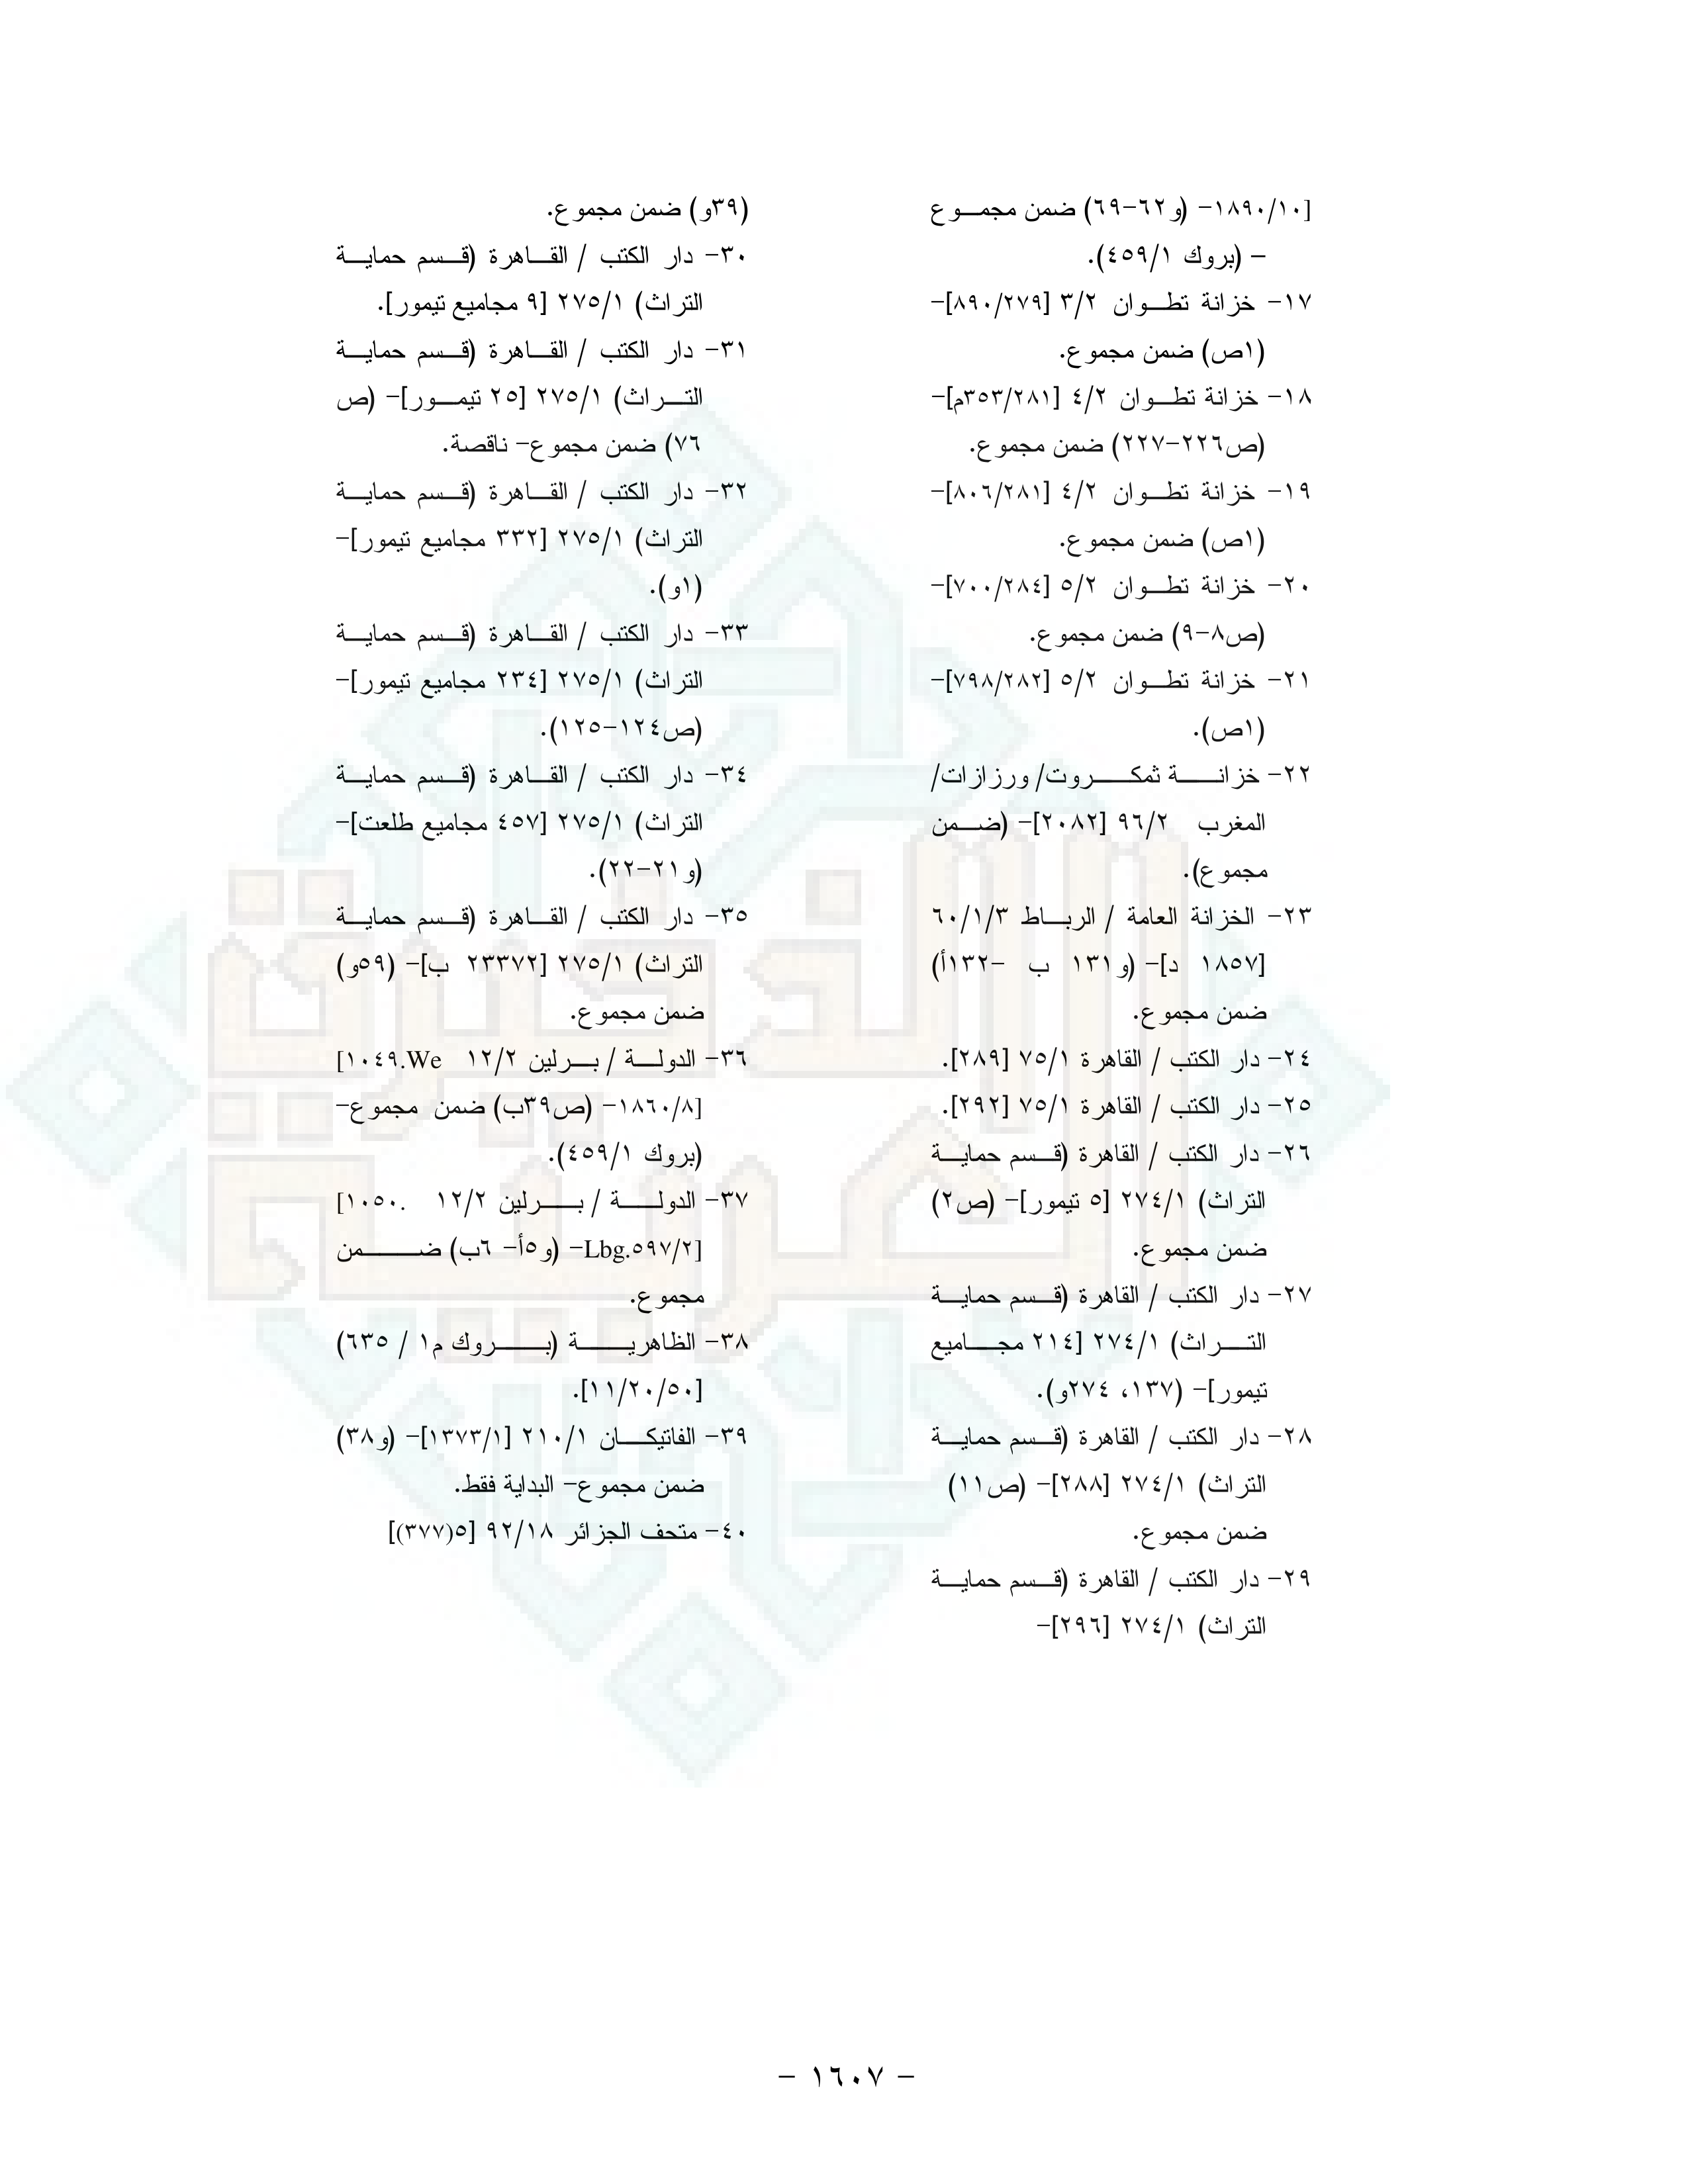 [١٨٩٠/١٠- (و٦٢-٦٩) ضمن مجموع
- (بروك ٤٥٩/١).
١٧- خزانة تطوان ٣/٢ [٨٩٠/٢٧٩]-
(١ص) ضمن مجموع.
١٨- خزانة تطوان ٤/٢ [٣٥٣/٢٨١م]-
(ص٢٢٦-٢٢٧) ضمن مجموع.
١٩- خزانة تطوان ٤/٢ [٨٠٦/٢٨١]-
(١ص) ضمن مجموع.
٢٠- خزانة تطوان ٥/٢ [٧٠٠/٢٨٤]-
(ص٨-٩) ضمن مجموع.
٢١- خزانة تطوان ٥/٢ [٧٩٨/٢٨٢]-
(١ص).
٢٢- خزانة ثمكروت/ ورزازات/
المغرب ٩٦/٢ [٢٠٨٢]- (ضمن
مجموع).
٢٣- الخزانة العامة / الرباط ٦٠/١/٣
[١٨٥٧ د]- (و١٣١ ب -١٣٢أ)
ضمن مجموع.
٢٤- دار الكتب / القاهرة ٧٥/١ [٢٨٩].
٢٥- دار الكتب / القاهرة ٧٥/١ [٢٩٢].
٢٦- دار الكتب / القاهرة (قسم حماية
التراث) ٢٧٤/١ [٥ تيمور]- (ص٢)
ضمن مجموع.
٢٧- دار الكتب / القاهرة (قسم حماية
التراث) ٢٧٤/١ [٢١٤ مجاميع
تيمور]- (١٣٧، ٢٧٤و).
٢٨- دار الكتب / القاهرة (قسم حماية
التراث) ٢٧٤/١ [٢٨٨]- (ص١١)
ضمن مجموع.
٢٩- دار الكتب / القاهرة (قسم حماية
التراث) ٢٧٤/١ [٢٩٦]-
(٣٩و) ضمن مجموع.
٣٠- دار الكتب / القاهرة (قسم حماية
التراث) ٢٧٥/١ [٩ مجاميع تيمور].
٣١- دار الكتب / القاهرة (قسم حماية
التراث) ٢٧٥/١ [٢٥ تيمور]- (ص
٧٦) ضمن مجموع- ناقصة.
٣٢- دار الكتب / القاهرة (قسم حماية
التراث) ٢٧٥/١ [٣٣٢ مجاميع تيمور]-
(١و).
٣٣- دار الكتب / القاهرة (قسم حماية
التراث) ٢٧٥/١ [٢٣٤ مجاميع تيمور]-
(ص١٢٤-١٢٥).
٣٤- دار الكتب / القاهرة (قسم حماية
التراث) ٢٧٥/١ [٤٥٧ مجاميع طلعت]-
(و٢١-٢٢).
٣٥- دار الكتب / القاهرة (قسم حماية
التراث) ٢٧٥/١ [٢٣٣٧٢ ب]- (٥٩و)
ضمن مجموع.
٣٦- الدولة / برلين ١٢/٢ ١٠٤٩.We]
[١٨٦٠/٨- (ص٣٩ب) ضمن مجموع-
(بروك ٤٥٩/١).
٣٧- الدولة / برلين ١٢/٢ .١٠٥٠]
[Lbg.٥٩٧/٢- (و٥أ- ٦ب) ضمن
مجموع.
٣٨- الظاهرية (بروك م١ / ٦٣٥)
[١١/٢٠/٥٠].
٣٩- الفاتيكان ٢١٠/١ [١٣٧٣/١]- (و٣٨)
ضمن مجموع- البداية فقط.
٤٠- متحف الجزائر ٩٢/١٨ [٥(٣٧٧)]
- ١٦٠٧ -
الذخيرة
العربية